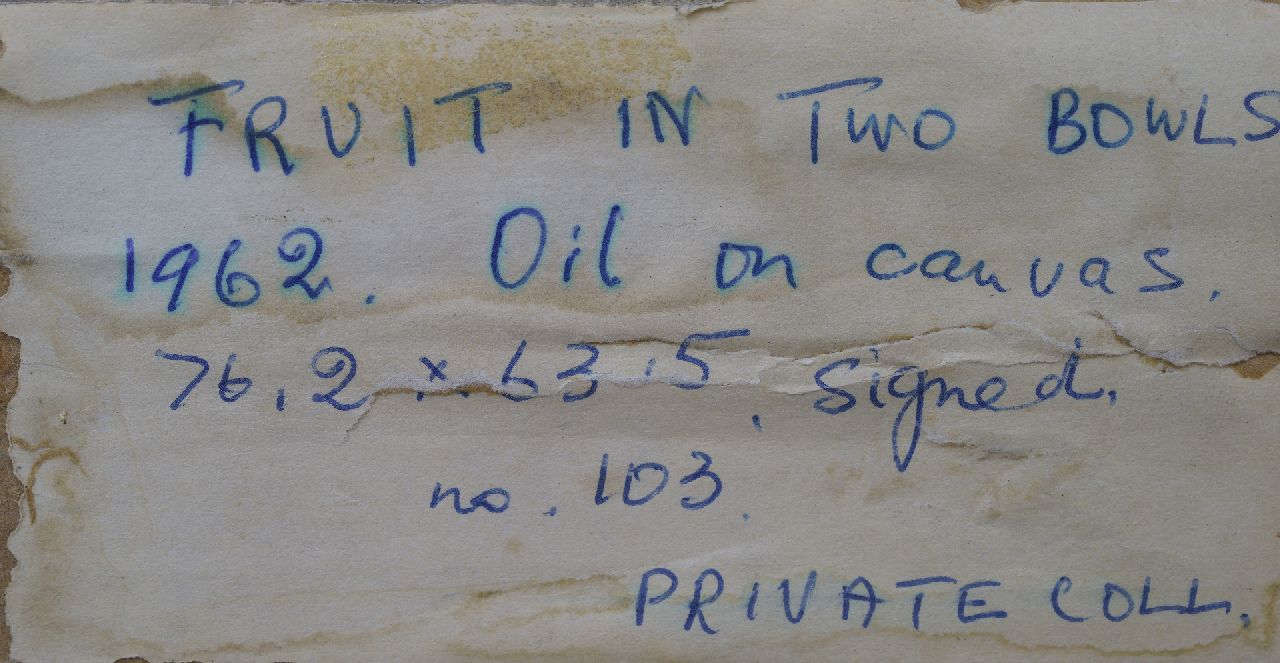 FRUIT IN TWO BOWLS
1962. Oil on canvas.
76.2 x 63.5. Signed.
no. 103.
PRIVATE COLL.